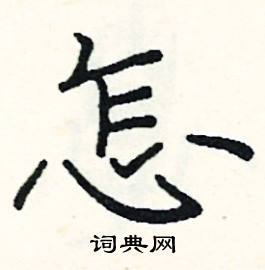 怎
词典网